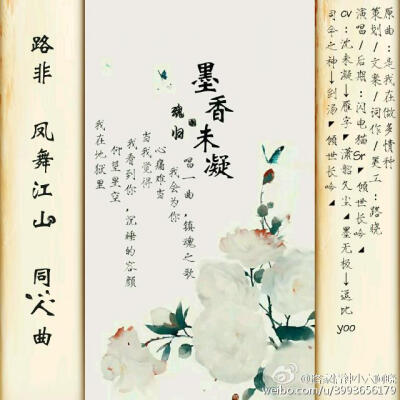 原曲：是我在做多情种
策划/文案/词作/美工：路晓
演唱/后期：闪电猫Gr◢倾世长吟◢
cv：沈未凝→雁字◢潇韶久尘◢墨无极→逗比yoo
司命之神→剑汤◢倾世长吟◢
墨香未凝
魂归
唱一曲，镇魂之歌
我会为你
心痛难当
当我觉得
我看到你，沉睡的容颜
仰望星空
我在地狱里
路非 凤舞江山 同人曲
weibo.com/u/3993656179